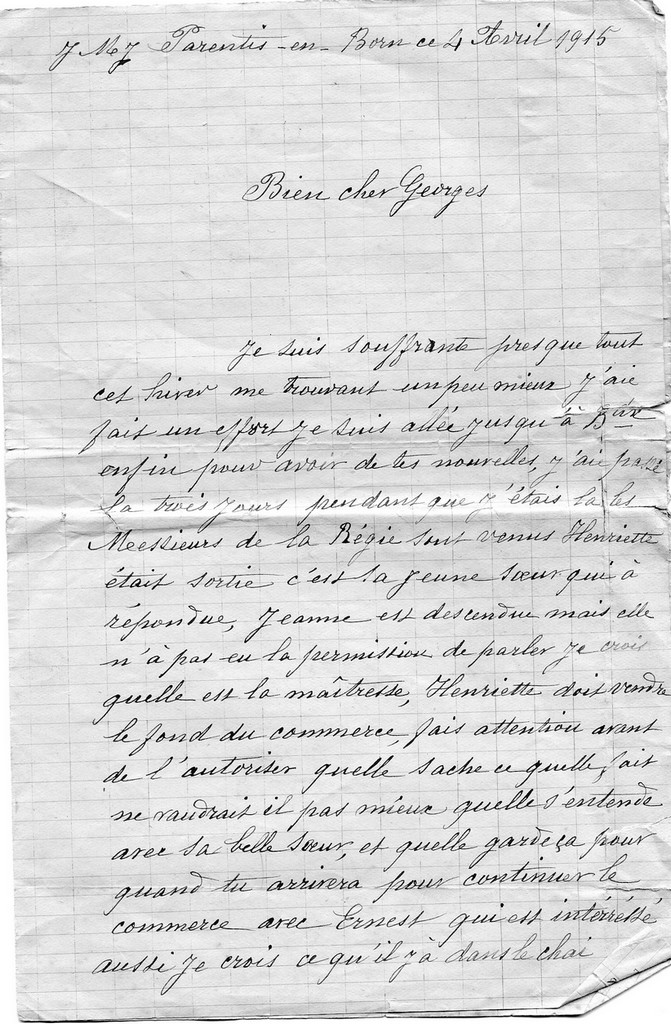 J M J Parentis-en-Born ce 4 Avril 1915
Bien cher Georges
Je suis souffrante presque tout
cet hiver me trouvant un peu mieux j'aie
fait un effort je suis allée jusqu'à Dax
enfin pour avoir de tes nouvelles, j'aie passé
la trois jours pendant que j'étais la les
Meessieurs de la Régie sont venus Henriette
était sortie c'est la jeune sœur qui à
répondue, Jeanne est descendue mais elle
n'à pas eu la permission de parler je crois
quelle est la maîtresse, Henriette doit vendre
le fond du commerce, fais attention avant
de l'autoriser quelle sache ce quelle fait
ne vaudrait il pas mieux quelle s'entende
avec sa belle sœur, et quelle garde ça pour
quand tu arrivera pour continuer le
commerce avec Ernest qui est intérressé
aussi je crois ce qu'il y à dans le chai